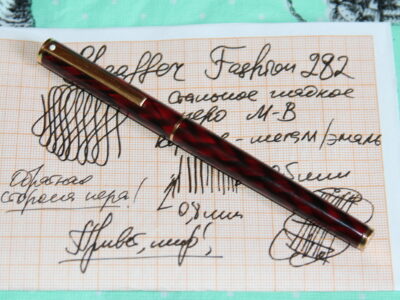 Sheaffer Fashion 282
стальное гладкое
перо М-В
- металл/эмаль
Обратная
сторона пера!
0,8 мм
Привет, мир!